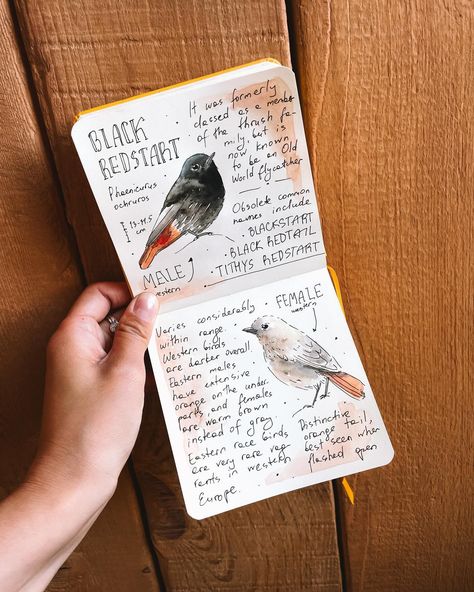 BLACK
REDSTART
Phoenicurus
ochruros
13-14.5
cm
MALE
western
It was formerly
classed as a member
of the thrush fa-
mily, but is
now known
to be an Old
World flycatcher
Obsolete common
names include
· BLACKSTART
· BLACK REDTAIL
· TITHYS REDSTART
Varies considerably
within range.
Western birds
are darker overall.
Eastern males
have extensive
orange on the under
parts and females
are warm brown
instead of gray.
Eastern race birds
are very rare vag-
rents in western
Europe.
FEMALE
western
Distinctive
orange tail,
best seen when
flashed open